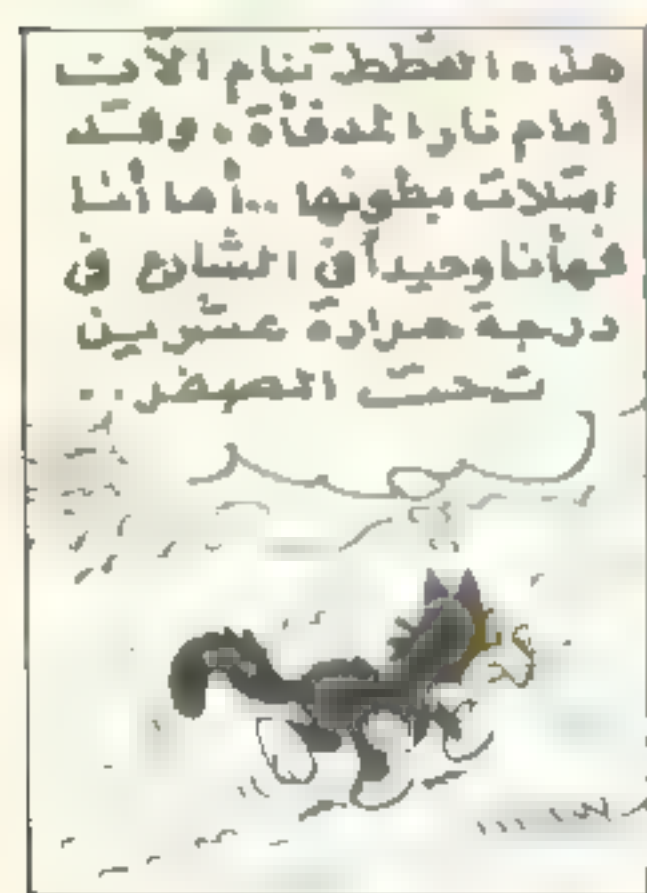 هذه القطط تنام الآن
أمام نار المدفأة، وقد
امتلأت بطونها .. أما أنا
فهأنا وحيداً في الشارع في
درجة حرارة عشرين
تحت الصفر..